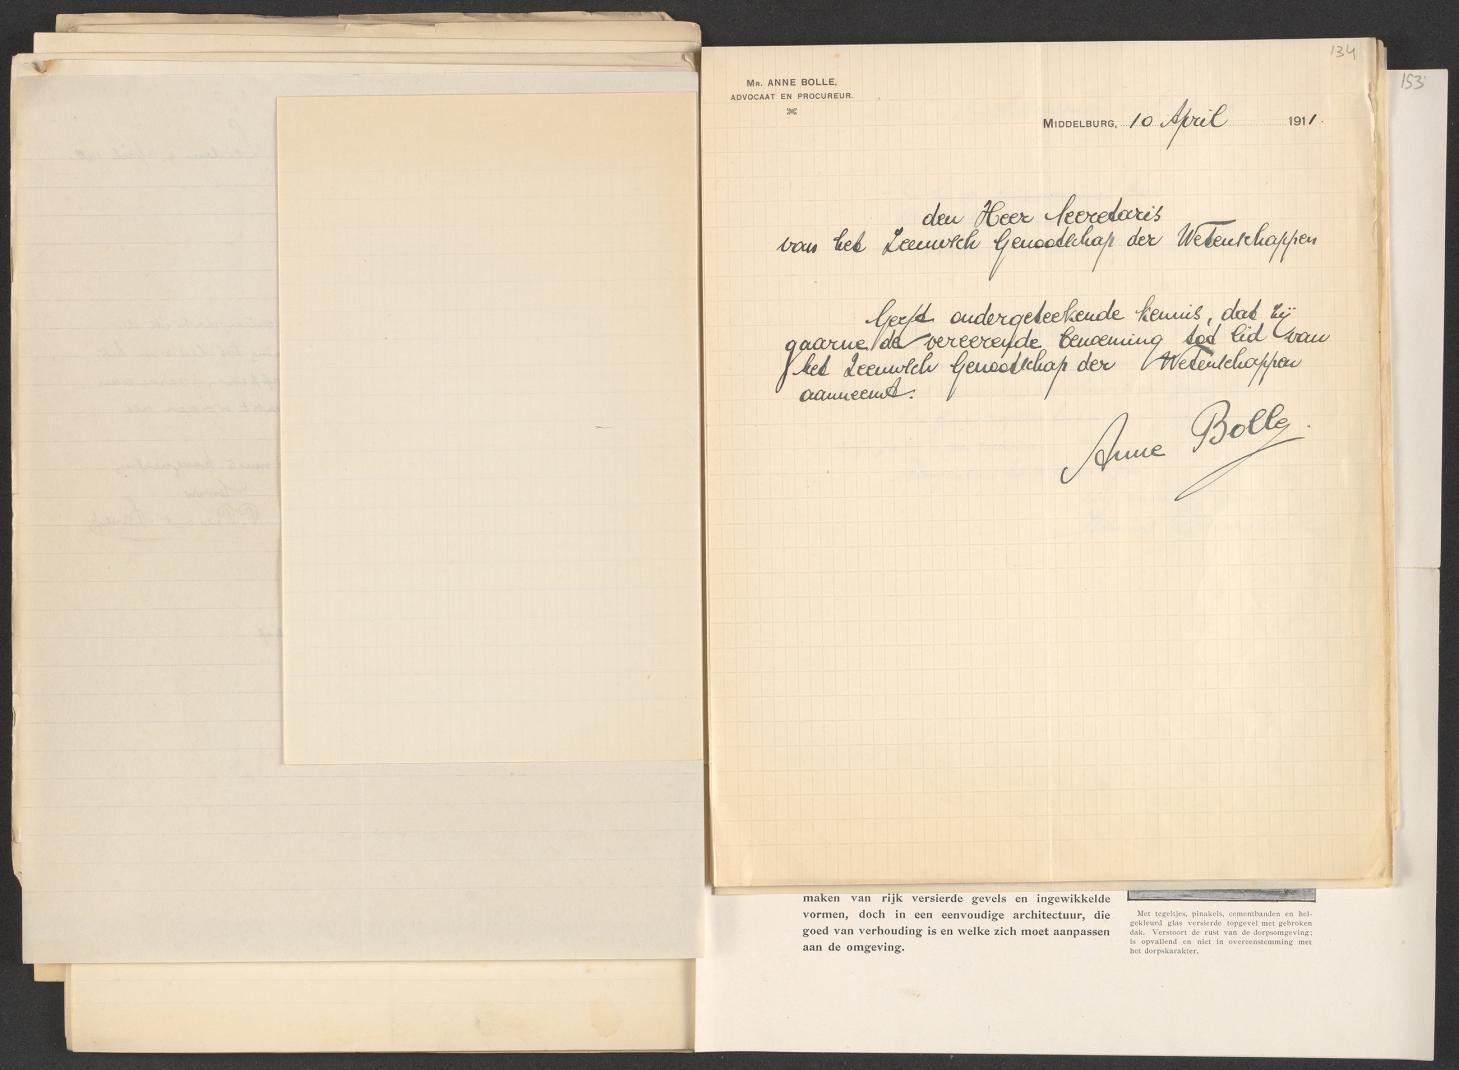 134
153
Mr. ANNE BOLLE,
ADVOCAAT EN PROCUREUR.
MIDDELBURG, 10 April 1911.
den Heer Secretaris
van het Zeeuwsch Genootschap der Wetenschappen
Geeft ondergeteekende kennis, dat zij
gaarne de vereerende benoeming tot lid van
het Zeeuwsch Genootschap der Wetenschappen
aanneemt.
Anne Bolle.
maken van rijk versierde gevels en ingewikkelde
vormen, doch in een eenvoudige architectuur, die
goed van verhouding is en welke zich moet aanpassen
aan de omgeving.
Met tegeltjes, pinakels, cementbanden en hel-
gekleurd glas versierde topgevel met gebroken
dak. Verstoort de rust van de dorpsomgeving;
is opvallend en niet in overeenstemming met
het dorpskarakter.